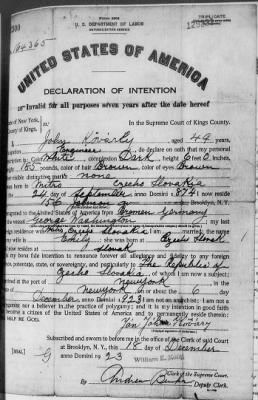 TRIPLICATE
U. S. DEPARTMENT OF LABOR
NATURALIZATION SERVICE
UNITED STATES OF AMERICA
DECLARATION OF INTENTION
Invalid for all purposes seven years after the date hereof
of New York,
County of Kings,
In the Supreme Court of Kings County.
John , aged 49 years,
occupation Engineer, do declare on oath that my personal
description is: Color White, complexion Dark, height 6 feet 0 inches,
weight pounds, color of hair Brown, color of eyes Brown
other visible distinctive marks none
born in Czecho Slovakia
24 day of September, anno Domini 1874; I now reside
156 Johnson , Brooklyn, N.Y.
emigrated to the United States of America from Bremen Germany
the vessel George Washington; my last
residence was Czecho Slovakia; I am married; the name
wife is Emily; she was born at Czecho Slovak
now resides at Slovak
my bona fide intention to renounce forever all allegiance and fidelity to any foreign
potentate, state, or sovereignty, and particularly to The Republic of
Czecho Slovakia, of whom I am now a subject;
arrived at the port of Newyork, in the
Newyork, on or about the 6 day
December, anno Domini 1923; I am not an anarchist; I am not a
polygamist nor a believer in the practice of polygamy; and it is my intention in good faith
to become a citizen of the United States of America and to permanently reside therein:
HELP ME GOD.
Jan John
Subscribed and sworn to before me in the office of the Clerk of said Court
at Brooklyn, N.Y., this 18 day of December
[SEAL] anno Domini 1923
Clerk of the Supreme Court.
By , Deputy Clerk.